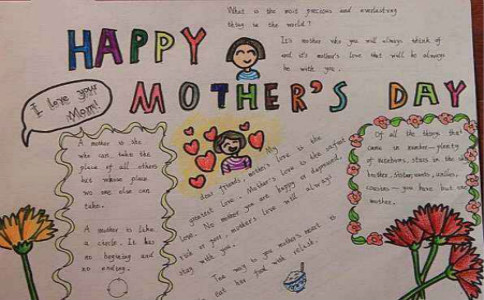 What is the most precious and everlasting
thing in the world?
It's mother who you will always think of
and it's mother's love that will be always
be with you.
HAPPY
MOTHER'S DAY
I love you
Mom!
A mother is she
who can take the
place of all others
but whose place
no one else can
take.
A mother is like
a circle. It has
no begining and
no ending.
My
dear friends, mother's love is the
greatest love. Mother's love is the safest
love. No matter you are happy or depressed,
rich or poor, mother's love will always
stay with you.
The way to you mother's heart is
out her food with relish.
Of all the things that
come in number—plenty
of rainbows, stars in the sky
brother, sister, aunts, uncles,
cousins—you have but one
mother.